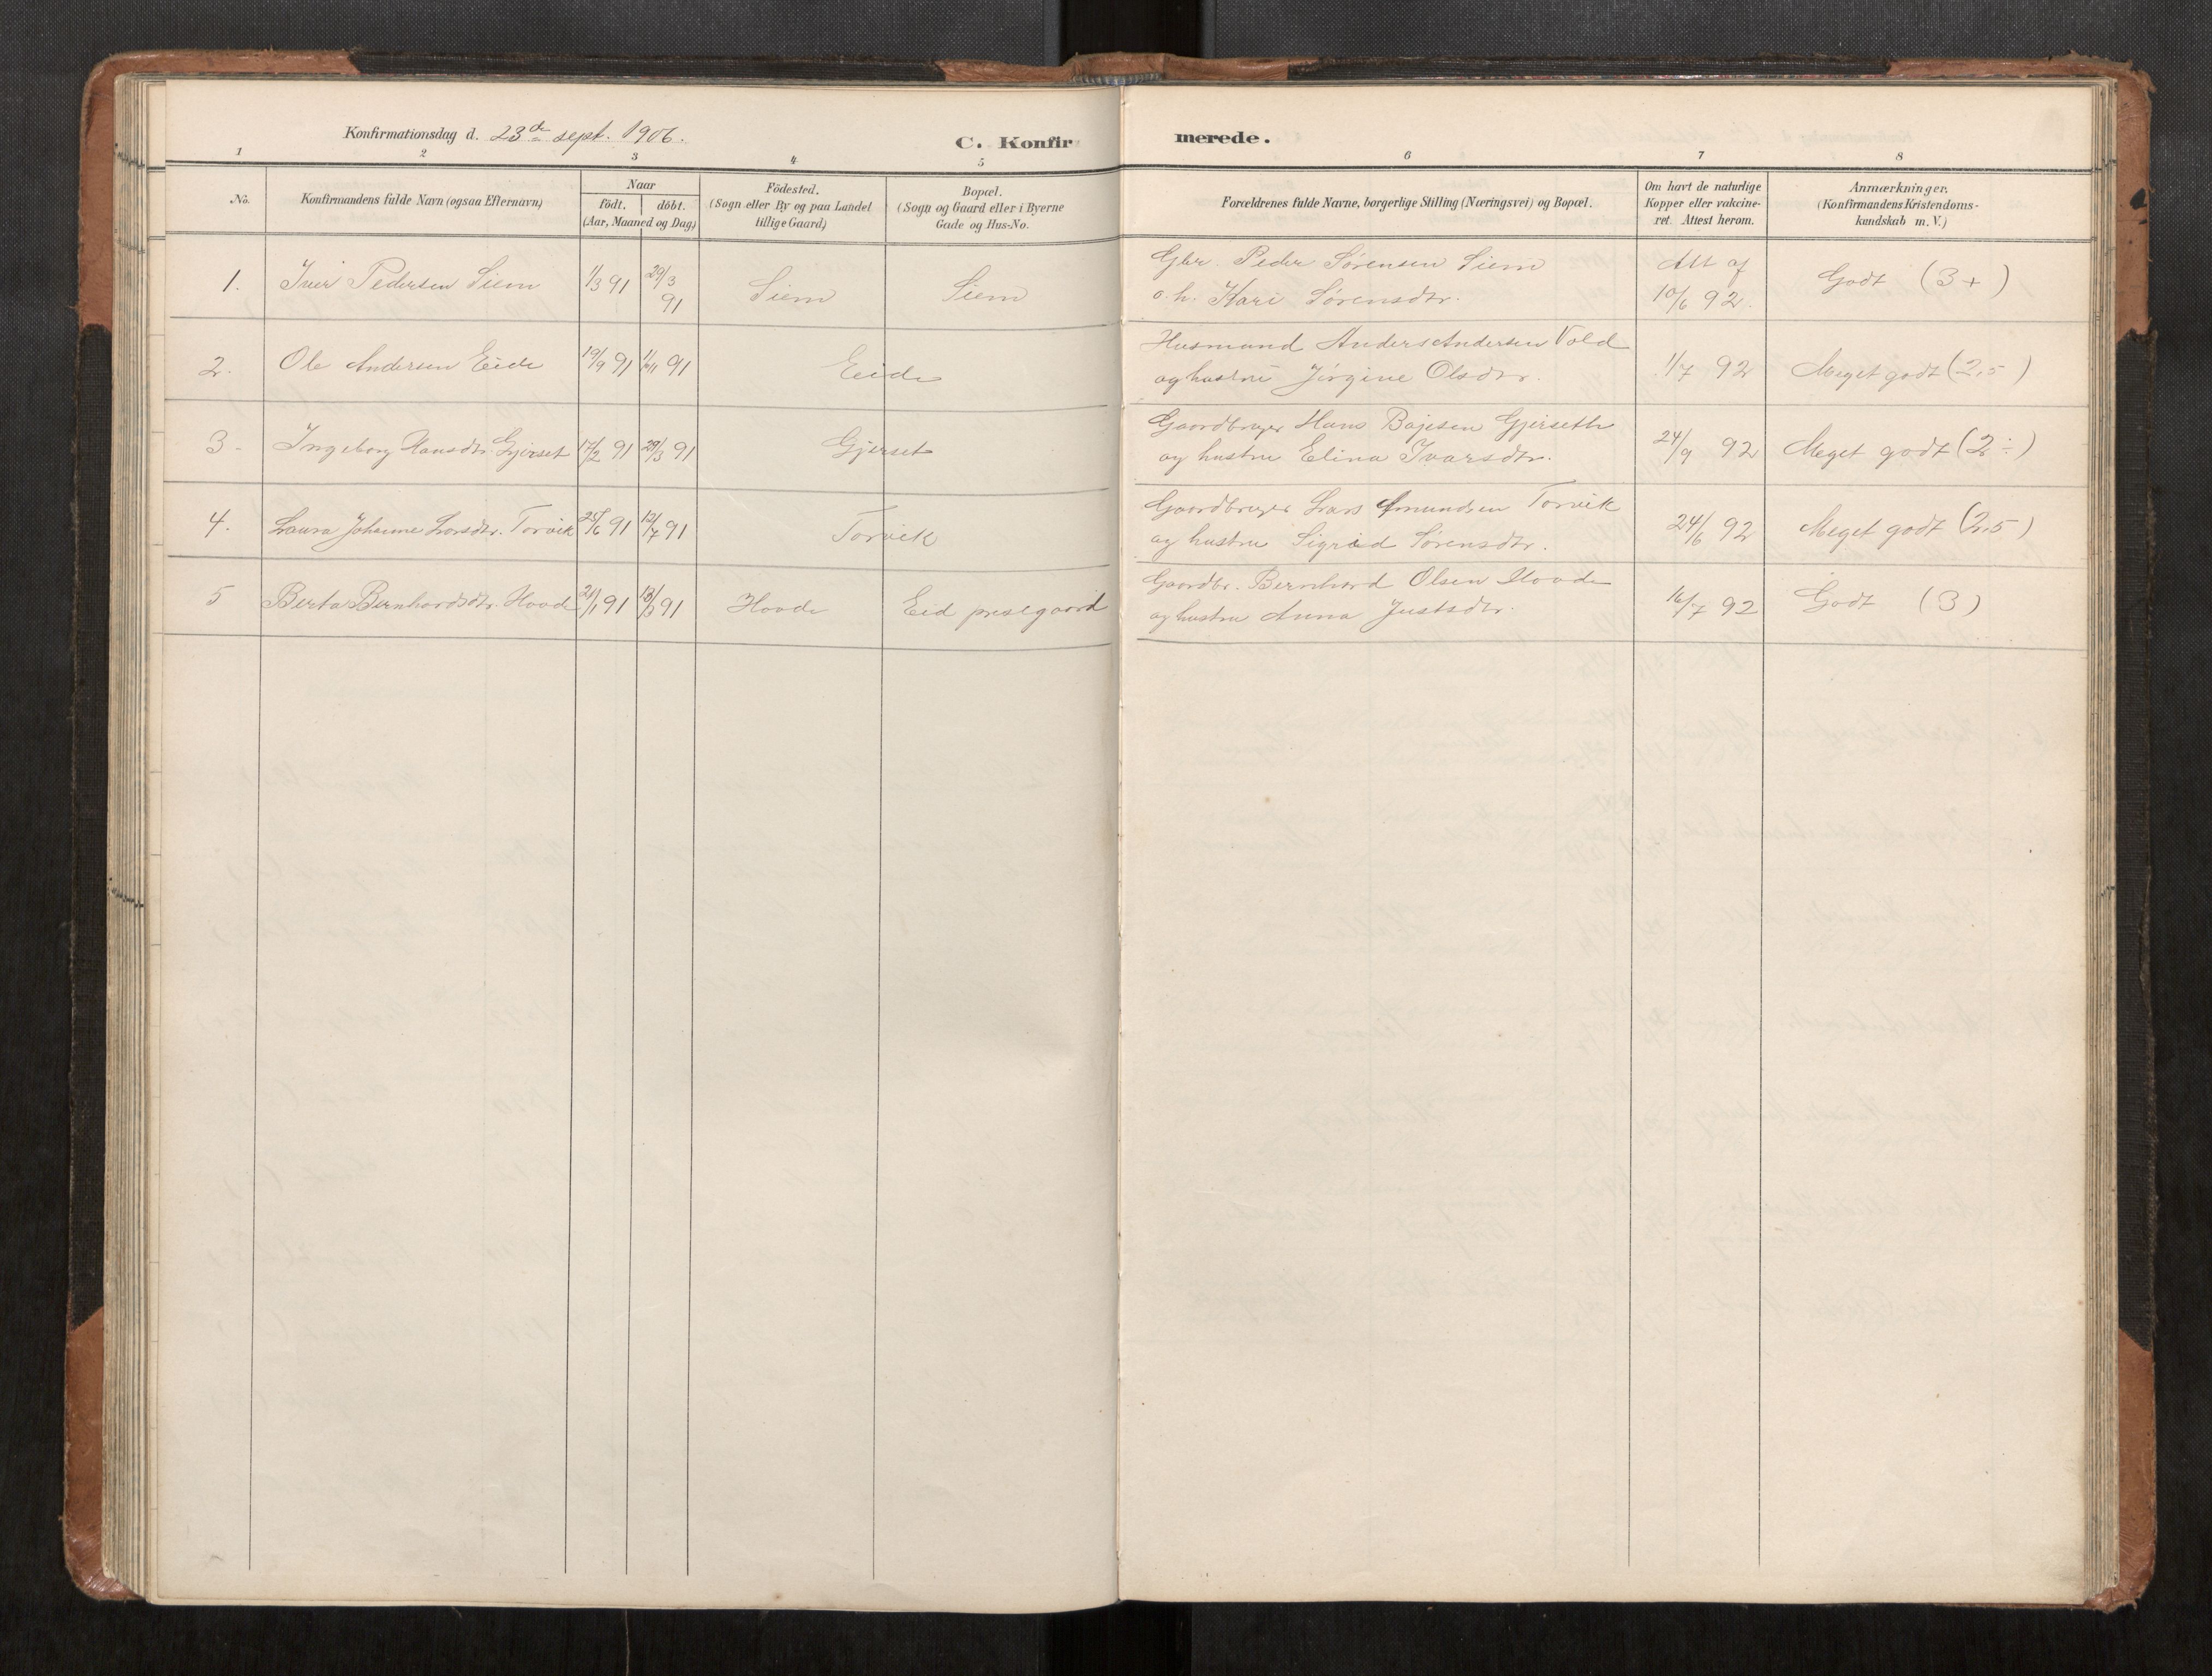 Konfirmationsdag d. 23de sept. 1906.
C. Konfirmerede.
1 2 3 4 5 6 7 8
No.
Konfirmandens fulde Navn (ogsaa Efternavn)
Naar
födt. döbt.
(Aar, Maaned og Dag)
Födested.
(Sogn eller By og paa Landet
tillige Gaard)
Bopæl.
(Sogn og Gaard eller i Byerne
Gade og Hus-No.
Forældrenes fulde Navne, borgerlige Stilling (Næringsvei) og Bopæl.
Om havt de naturlige
Kopper eller vakcine-
ret. Attest herom.
Anmærkninger.
(Konfirmandens Kristendoms-
kundskab m. V.)
1. Iver Pedersen Siem 1/3 91 29/3 91 Siem Siem
Gbr. Peder Sørensen Siem
o. h. Kari Sørensdtr.
Att af
10/6 92.
Godt (3+)
2. Ole Andersen Eide 19/9 91 1/11 91 Eide
Husmand Anders Andersen Vold
og hustru Jørgine Olsdtr.
1/7 92 Meget godt (2,5)
3. Ingeborg Hansdtr. Gjerset 17/2 91 29/3 91 Gjerset
Gaardbruger Hans Bajesen Gjerseth
og hustru Elina Ivarsdtr.
24/9 92 Meget godt (2÷)
4. Laura Johanne Larsdtr. Torvik 25/6 91 12/7 91 Torvik
Gaardbruger Lars Amundsen Torvik
og hustru Sigrid Sørensdtr.
24/6 92 Meget godt (2,5)
5 Berta Bernhardsdtr. Hovde 21/1 91 13/3 91 Hovde Eid prestgaard
Gaardbr. Bernhard Olsen Hovde
og hustru Anna Justsdtr.
16/7 92 Godt (3)